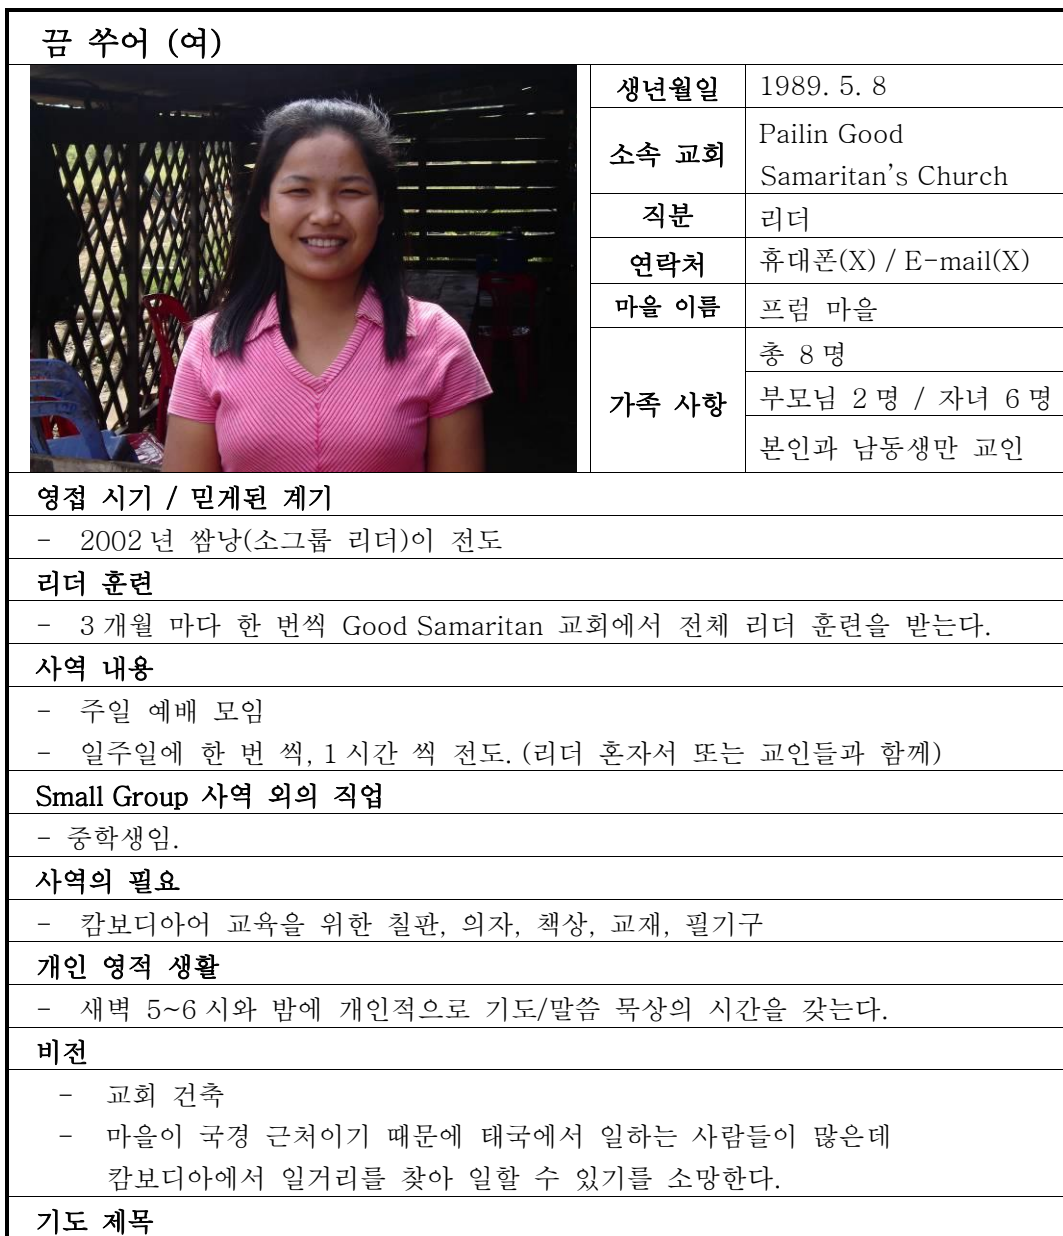 끔 쑤어 (여)
생년월일
1989. 5. 8
소속 교회
Pailin Good
Samaritan’s Church
직분
리더
연락처
휴대폰(X) / E-mail(X)
마을 이름
프럼 마을
가족 사항
총 8명
부모님 2명 / 자녀 6명
본인과 남동생만 교인
영접 시기 / 믿게된 계기
- 2002년 쌈낭(소그룹 리더)이 전도
리더 훈련
- 3개월 마다 한 번씩 Good Samaritan 교회에서 전체 리더 훈련을 받는다.
사역 내용
- 주일 예배 모임
- 일주일에 한 번 씩, 1시간 씩 전도. (리더 혼자서 또는 교인들과 함께)
Small Group 사역 외의 직업
- 중학생임.
사역의 필요
- 캄보디아어 교육을 위한 칠판, 의자, 책상, 교재, 필기구
개인 영적 생활
- 새벽 5~6시와 밤에 개인적으로 기도/말씀 묵상의 시간을 갖는다.
비전
- 교회 건축
- 마을이 국경 근처이기 때문에 태국에서 일하는 사람들이 많은데
캄보디아에서 일거리를 찾아 일할 수 있기를 소망한다.
기도 제목